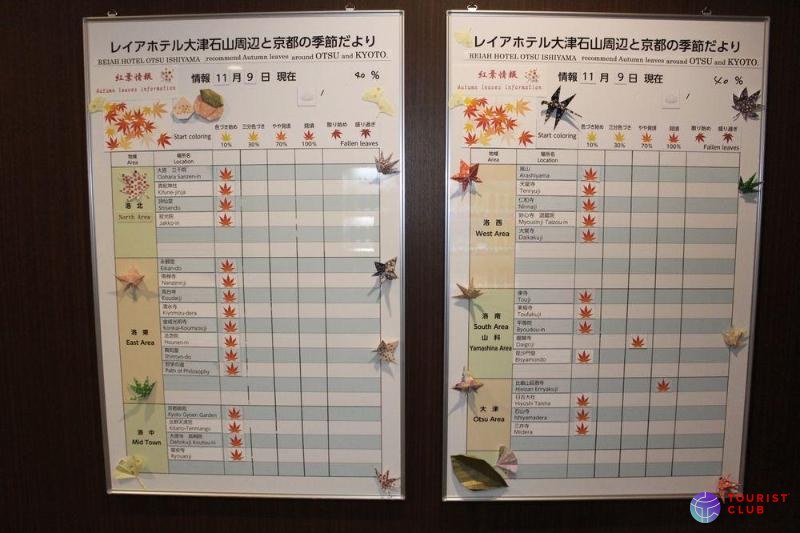 レイアホテル大津石山周辺と京都の季節だより
REIAH HOTEL OTSU ISHIYAMA recommend Autumn leaves around OTSU and KYOTO
紅葉情報
Autumn leaves information
情報 11 月 9 日 現在
%
/
Start coloring
色づき始め 三分色づき やや見頃 見頃 散り始め 盛り過ぎ
10% 30% 70% 100% Fallen leaves
地域 場所名
Area Location
洛北
North Area
大原 三千院
Oohara Sanzen-in
貴船神社
Kifune-jinja
詩仙堂
Shisendo
寂光院
Jakko-in
洛東
East Area
永観堂
Eikan-do
南禅寺
Nanzen-ji
高台寺
Koudaiji
清水寺
Kiyomizu-dera
金戒光明寺
Konkai-Koumyouji
法然院
Hounen-in
真如堂
Shinnyo-do
哲学の道
Path of Philosophy
洛中
Mid Town
京都御苑
Kyoto Gyoen Garden
北野天満宮
Kitano-Tenmangu
大徳寺 高桐院
Daitokuji Koutou-in
龍安寺
Ryouanji
レイアホテル大津石山周辺と京都の季節だより
REIAH HOTEL OTSU ISHIYAMA recommend Autumn leaves around OTSU and KYOTO
紅葉情報
Autumn leaves information
情報 11 月 9 日 現在
40 %
/
Start coloring
色づき始め 三分色づき やや見頃 見頃 散り始め 盛り過ぎ
10% 30% 70% 100% Fallen leaves
地域 場所名
Area Location
洛西
West Area
嵐山
Arashiyama
天龍寺
Tenryuji
仁和寺
Ninnaji
妙心寺 退蔵院
Myousinji Taizou-in
大覚寺
Daikakuji
洛南
South Area
山科
Yamashina Area
東寺
Touji
東福寺
Toufukuji
平等院
Byoudou-in
醍醐寺
Daigoji
毘沙門堂
Bisyamondo
大津
Otsu Area
比叡山延暦寺
Hieizan Enryakuji
日吉大社
Hiyoshi Taisha
石山寺
Ishiyamadera
三井寺
Miidera
TOURIST
CLUB